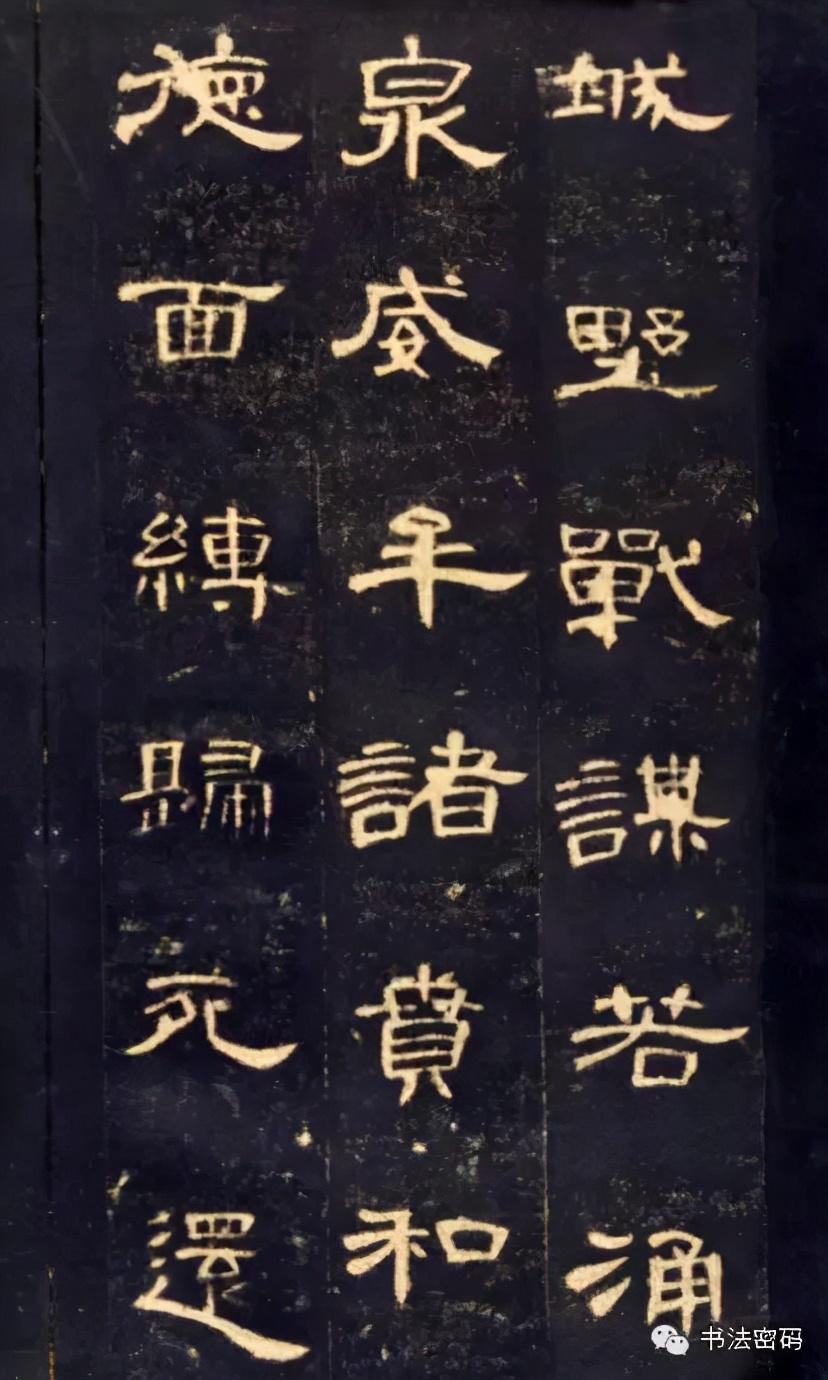 城野戰謀若涌
泉威牟諸賁和
德面縛歸死還
书法密码